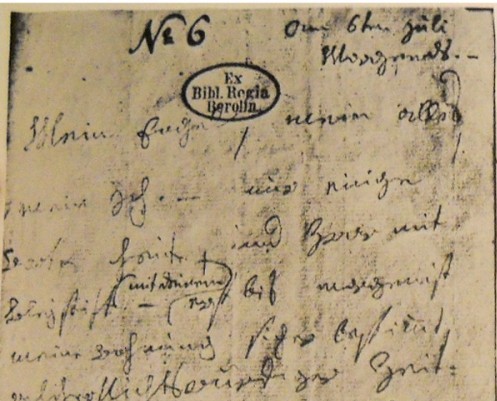 No 6 am 6ten Juli
Morgends. –
Ex
Bibl. Regia
Berolin.
Mein Engel, mein alles
mein Ich. – nur einige
Worte heute, und zwar mit
Bleystift – (mit deinem) erst bis morgen ist
meine Wohnung sicher bestimmt,
welcher Nichtswürdiger Zeit-